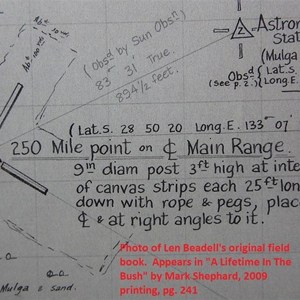 Astron
Stat
(Mulga
Obsd (Lat.S.
(See p. 2.) Long.E.
(Obsd by Sun Obsn)
83° 31' True.
894½ feet.
(Lat.S. 28 50 20 Long.E. 133° 07'
250 Mile point on ℄ Main Range.
9in diam post 3ft high at inte
of canvas strips each 25ft lon
down with rope & pegs, plac
℄ & at right angles to it.
Photo of Len Beadell's original field
book. Appears in "A Lifetime In The
Bush" by Mark Shephard, 2009
printing, pg. 241
Mulga & sand.